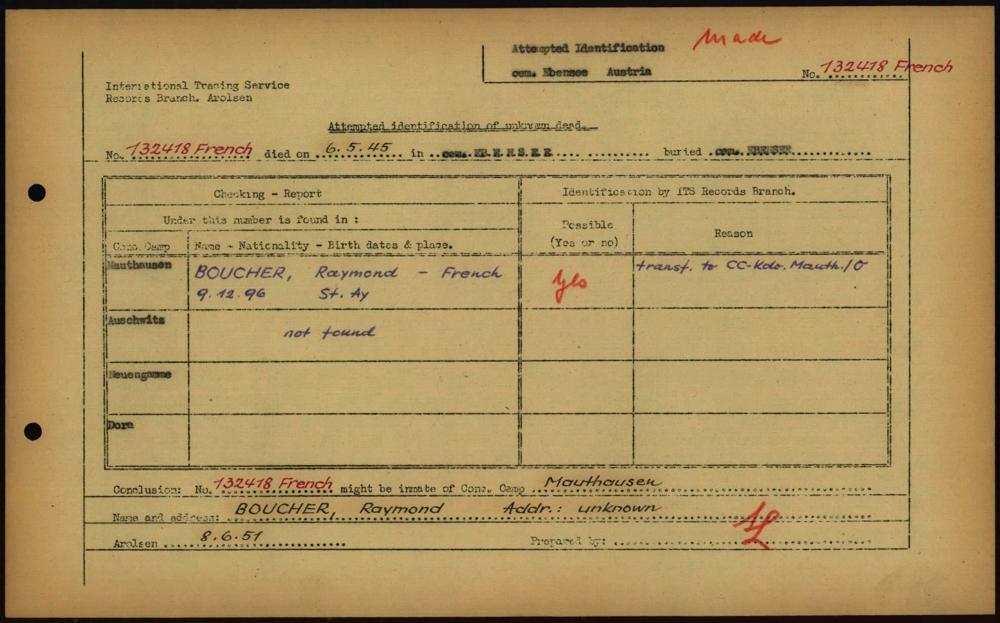 Attempted Identification made
cem. Ebensee Austria No. 132418 French
International Tracing Service
Records Branch. Arolsen
Attempted identification of unknown dead.
No. 132418 French died on 6.5.45 in cem. EBENSEE buried cem. EBENSEE
Checking - Report Identification by ITS Records Branch.
Under this number is found in :
Possible
(Yes or no) Reason
Conc. Camp Name - Nationality - Birth dates & place.
Mauthausen BOUCHER, Raymond - French Yes transf. to CC-Kdo. Mauth./O
9.12.96 St. Ay
Auschwitz not found
Neuengamme
Dora
Conclusion: No. 132418 French might be inmate of Conc. Camp Mauthausen
Name and address: BOUCHER, Raymond Addr.: unknown
Arolsen 8.6.51 Prepared by: